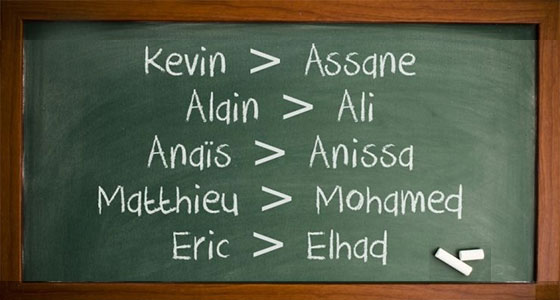 Kevin > Assane
Alain > Ali
Anaïs > Anissa
Matthieu > Mohamed
Eric > Elhad